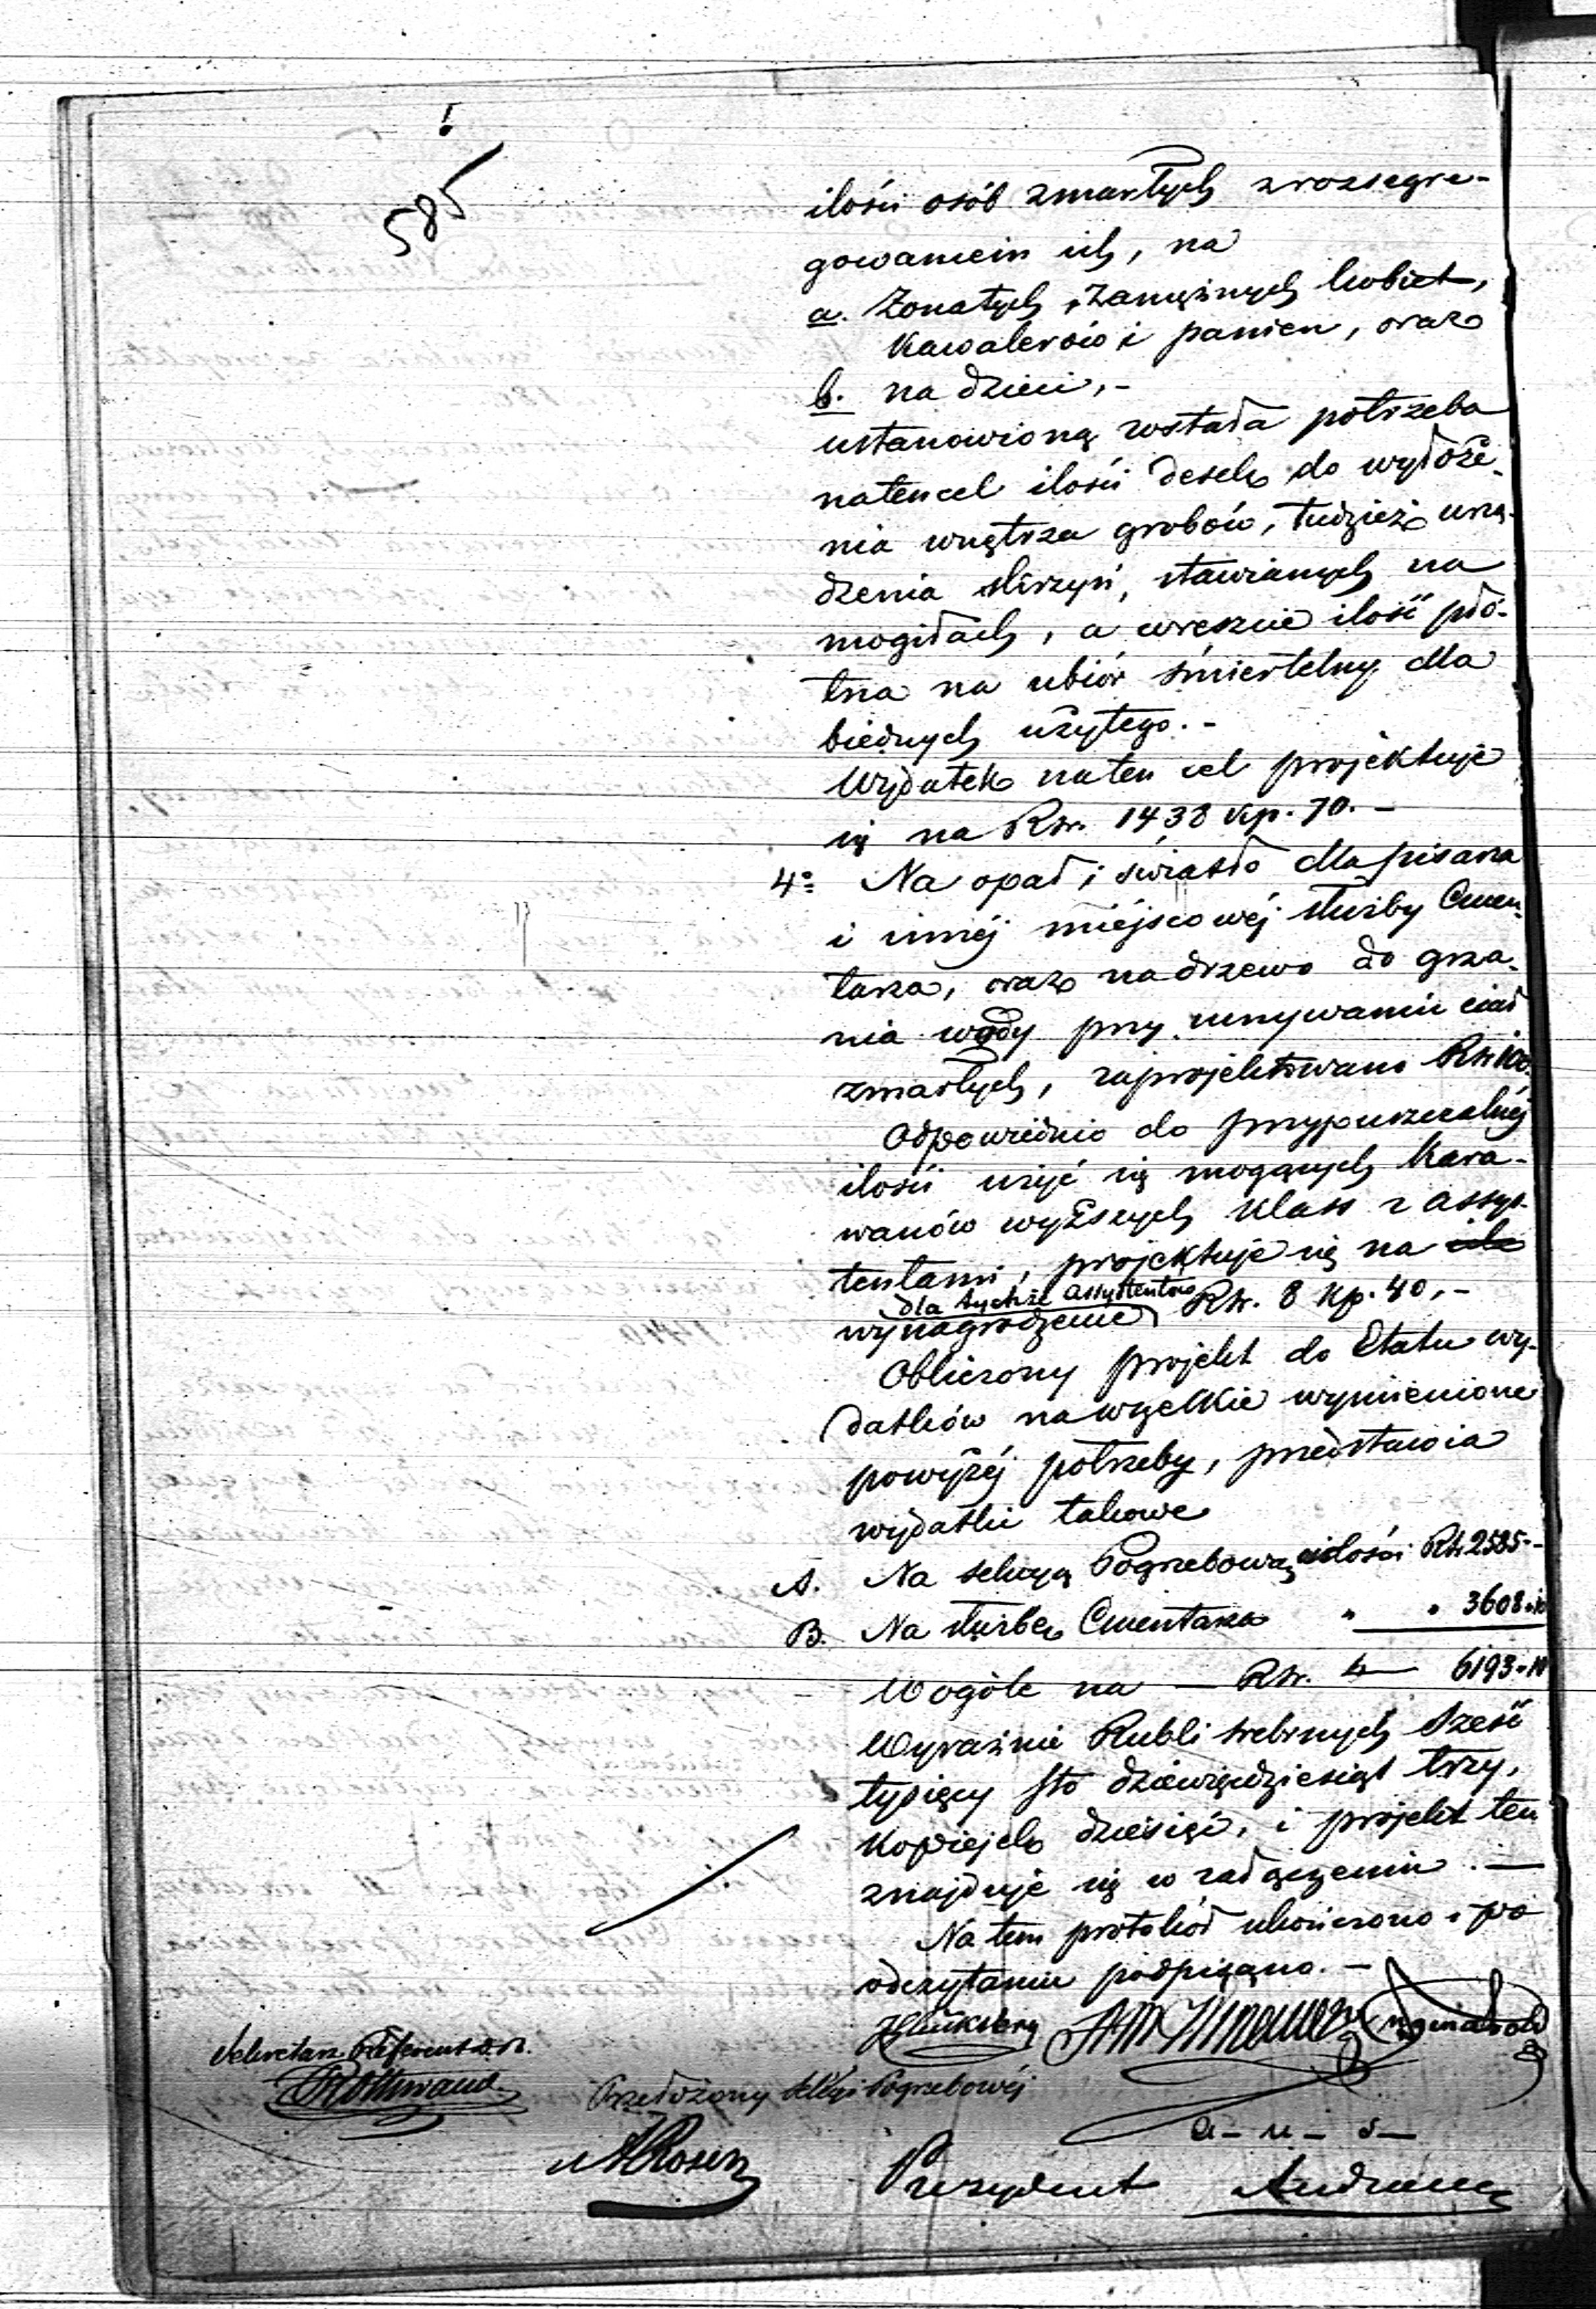 585
ilości osób zmarłych z rozsegre-
gowaniem ich, na
a. Żonatych, Zamężnych kobiet,
Kawalerów i panien, oraz
b. na dzieci, -
ustanowioną została potrzeba
na ten cel ilości desek do wyłoże-
nia wnętrza grobów, tudzież urzą-
dzenia skrzyń, stawianych na
mogiłach, a wreszcie ilość płó-
tna na ubiór śmiertelny dla
biednych użytego. -
Wydatek na ten cel projektuje
się na Rsr. 1438 kp. 70. -
4o Na opał i światło dla pisarza
i innéj miéjscowéj służby Cmen-
tarza, oraz na drzewo do grza-
nia wody przy umywaniu ciał
zmarłych, zaprojektowano Rsr 100.
Odpowiednio do przypuszczalnéj
ilości użyć się mogących Kara-
wanów wyższych klass z assys-
tentami, projektuje się na
dla tychże assystentów
wynagrodzenie Rsr. 8 kp. 40, -
Obliczony projekt do Etatu wy-
datków na wszelkie wymienione
powyżéj potrzeby, przedstawia
wydatki takowe
A. Na sekcyą Pogrzebową w ilości Rsr 2585 -
B. Na służbę Cmentarza " " 3608 " 10
W ogóle na — Rsr. 6193 " 10
Wyraźnie Rubli srebrnych Sześć
tysięcy sto dziewięćdziesiąt trzy,
Kopiejek dziesięć, i projekt ten
znajduje się w załączeniu. —
Na tem protokół ukończono i po
odczytaniu podpisano. -
Sekretarz Referent
Rothwand
Przełożony Sekcyi Pogrzebowéj
ARosen
Prezydent